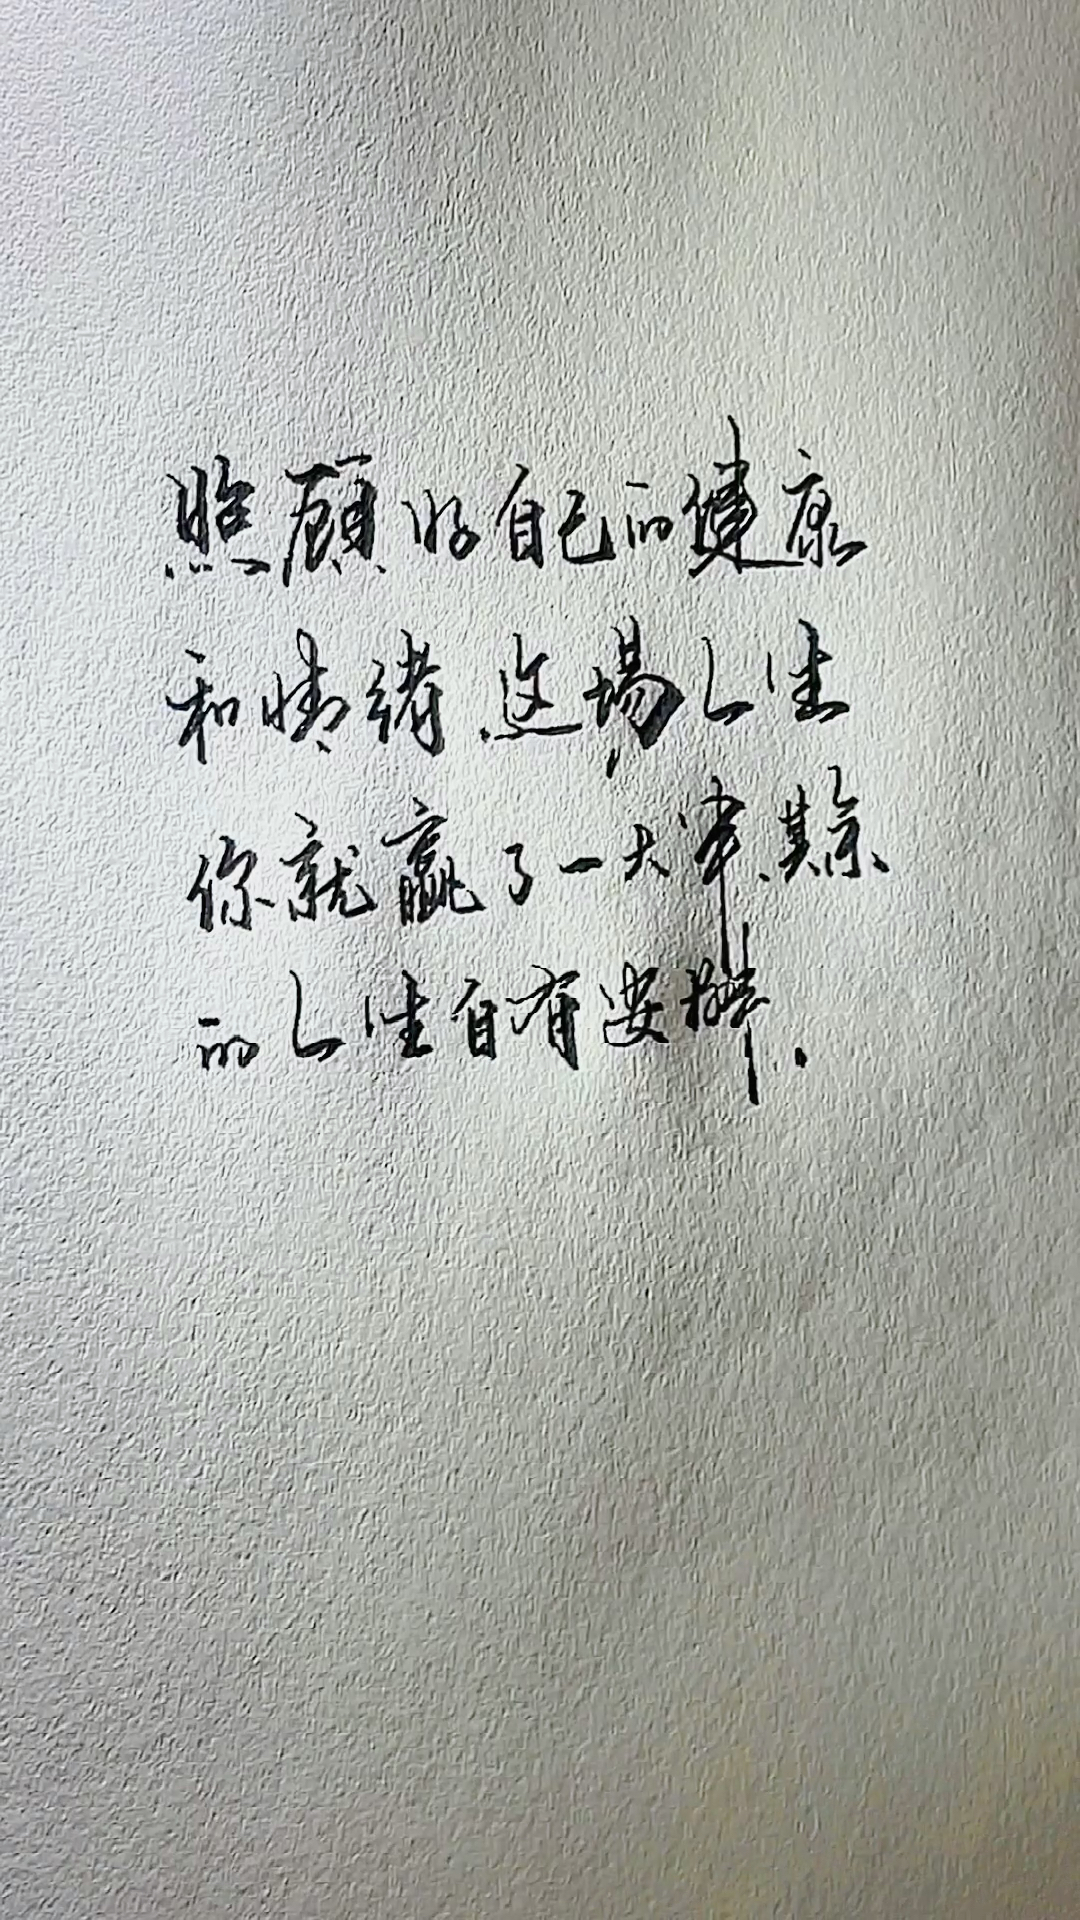 照顾好自己的健康
和情绪、这场人生
你就赢了一大半、其余
的人生自有安排.